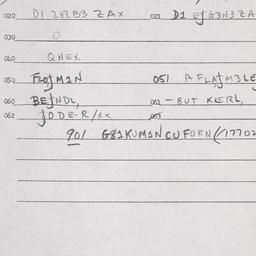 020 D1 2ELB3 ZAX 021 D1 EƒG3N3 ZA
030 O
040 QNEX
050 FLOƒM1N 051 AFLAƒM3LE
060 BEƒNDL, 061 - BUT KLERL,
062 ƒODE-R/XX 063
901 G81KUM1NCUFORN(/1770